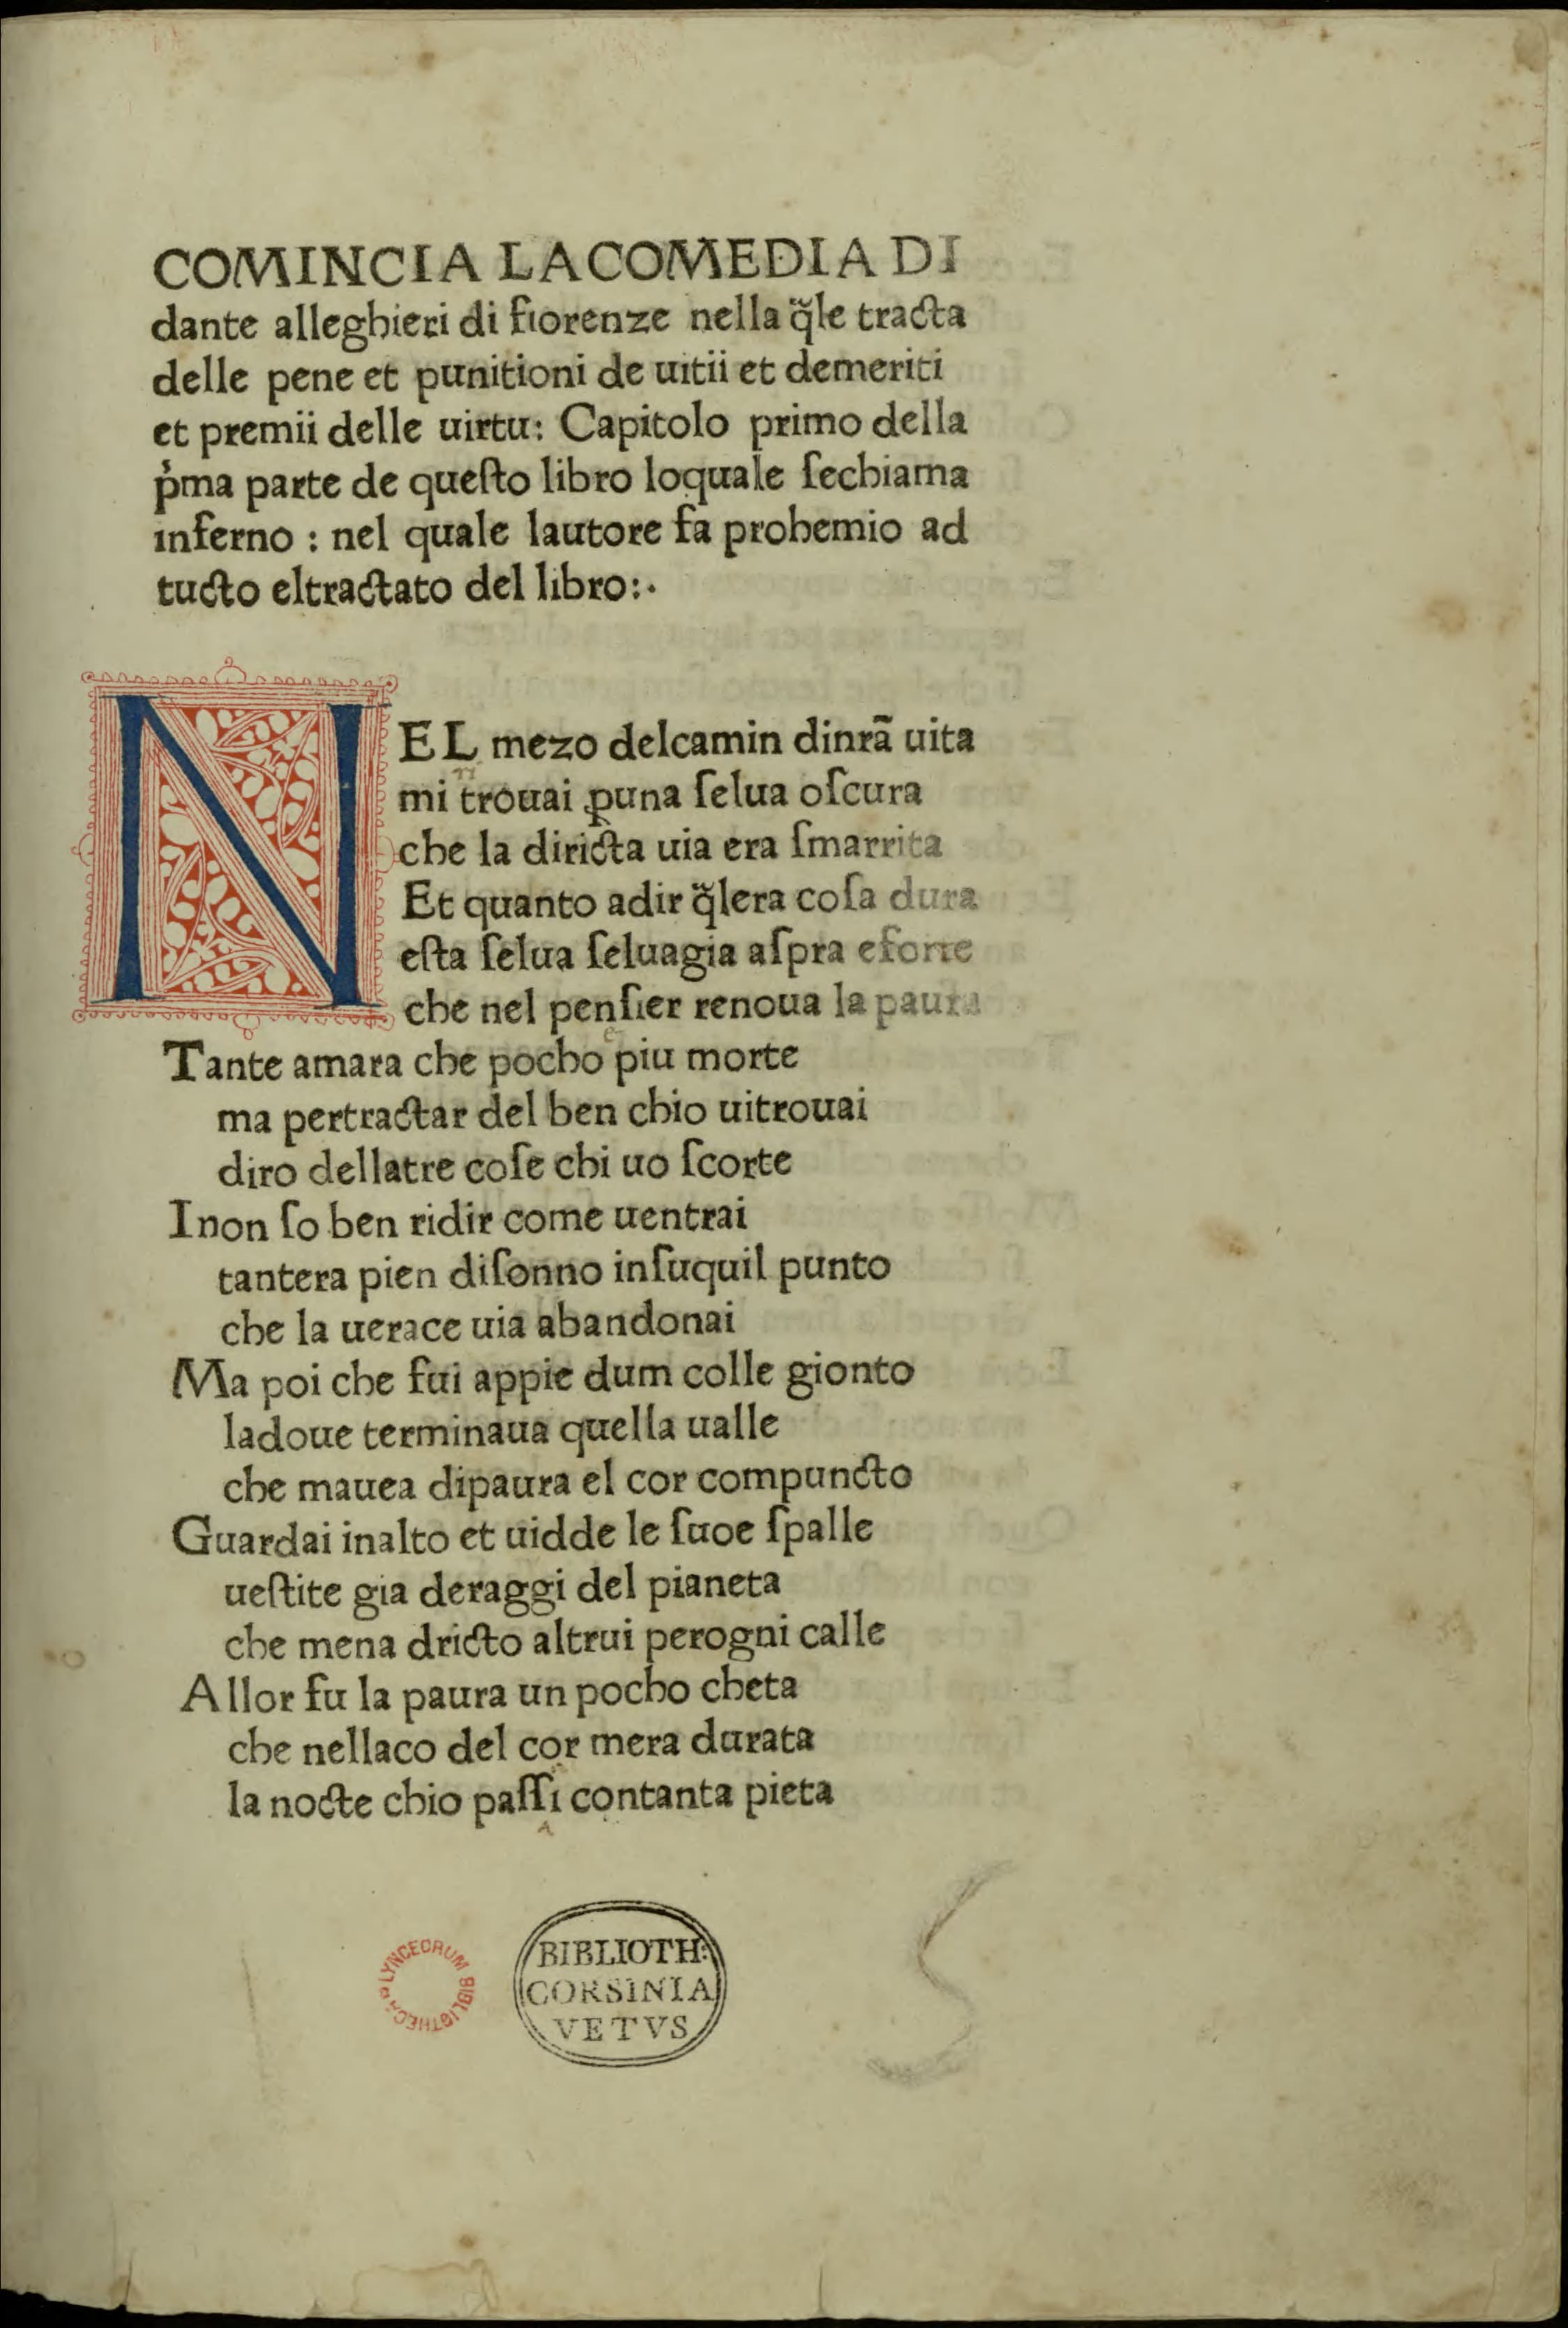 COMINCIA LA COMEDIA DI
dante alleghieri di fiorenze nella q̃le tracta
delle pene et punitioni de uitii et demeriti
et premii delle uirtu: Capitolo primo della
p̍ma parte de queſto libro loquale ſechiama
inferno : nel quale lautore fa prohemio ad
tucto eltractato del libro:·
NEL mezo delcamin dinr̃a uita
mi trouai ꝑuna ſelua oſcura
che la diricta uia era ſmarrita
Et quanto adir q̃lera coſa dura
eſta ſelua ſeluagia aſpra eforte
che nel penſier renoua la paura
Tante amara che pocho piu morte
ma pertractar del ben chio uitrouai
diro dellatre coſe chi uo ſcorte
Inon ſo ben ridir come uentrai
tantera pien diſonno inſuquil punto
che la uerace uia abandonai
Ma poi che fui appie dum colle gionto
ladoue terminaua quella ualle
che mauea dipaura el cor compuncto
Guardai inalto et uidde le ſuoe ſpalle
ueſtite gia deraggi del pianeta
che mena dricto altrui perogni calle
Allor fu la paura un pocho cheta
che nellaco del cor mera durata
la nocte chio paſſi contanta pieta
LYNCEORUM BIBLIOTHECA
BIBLIOTH:
CORSINIA
VETVS